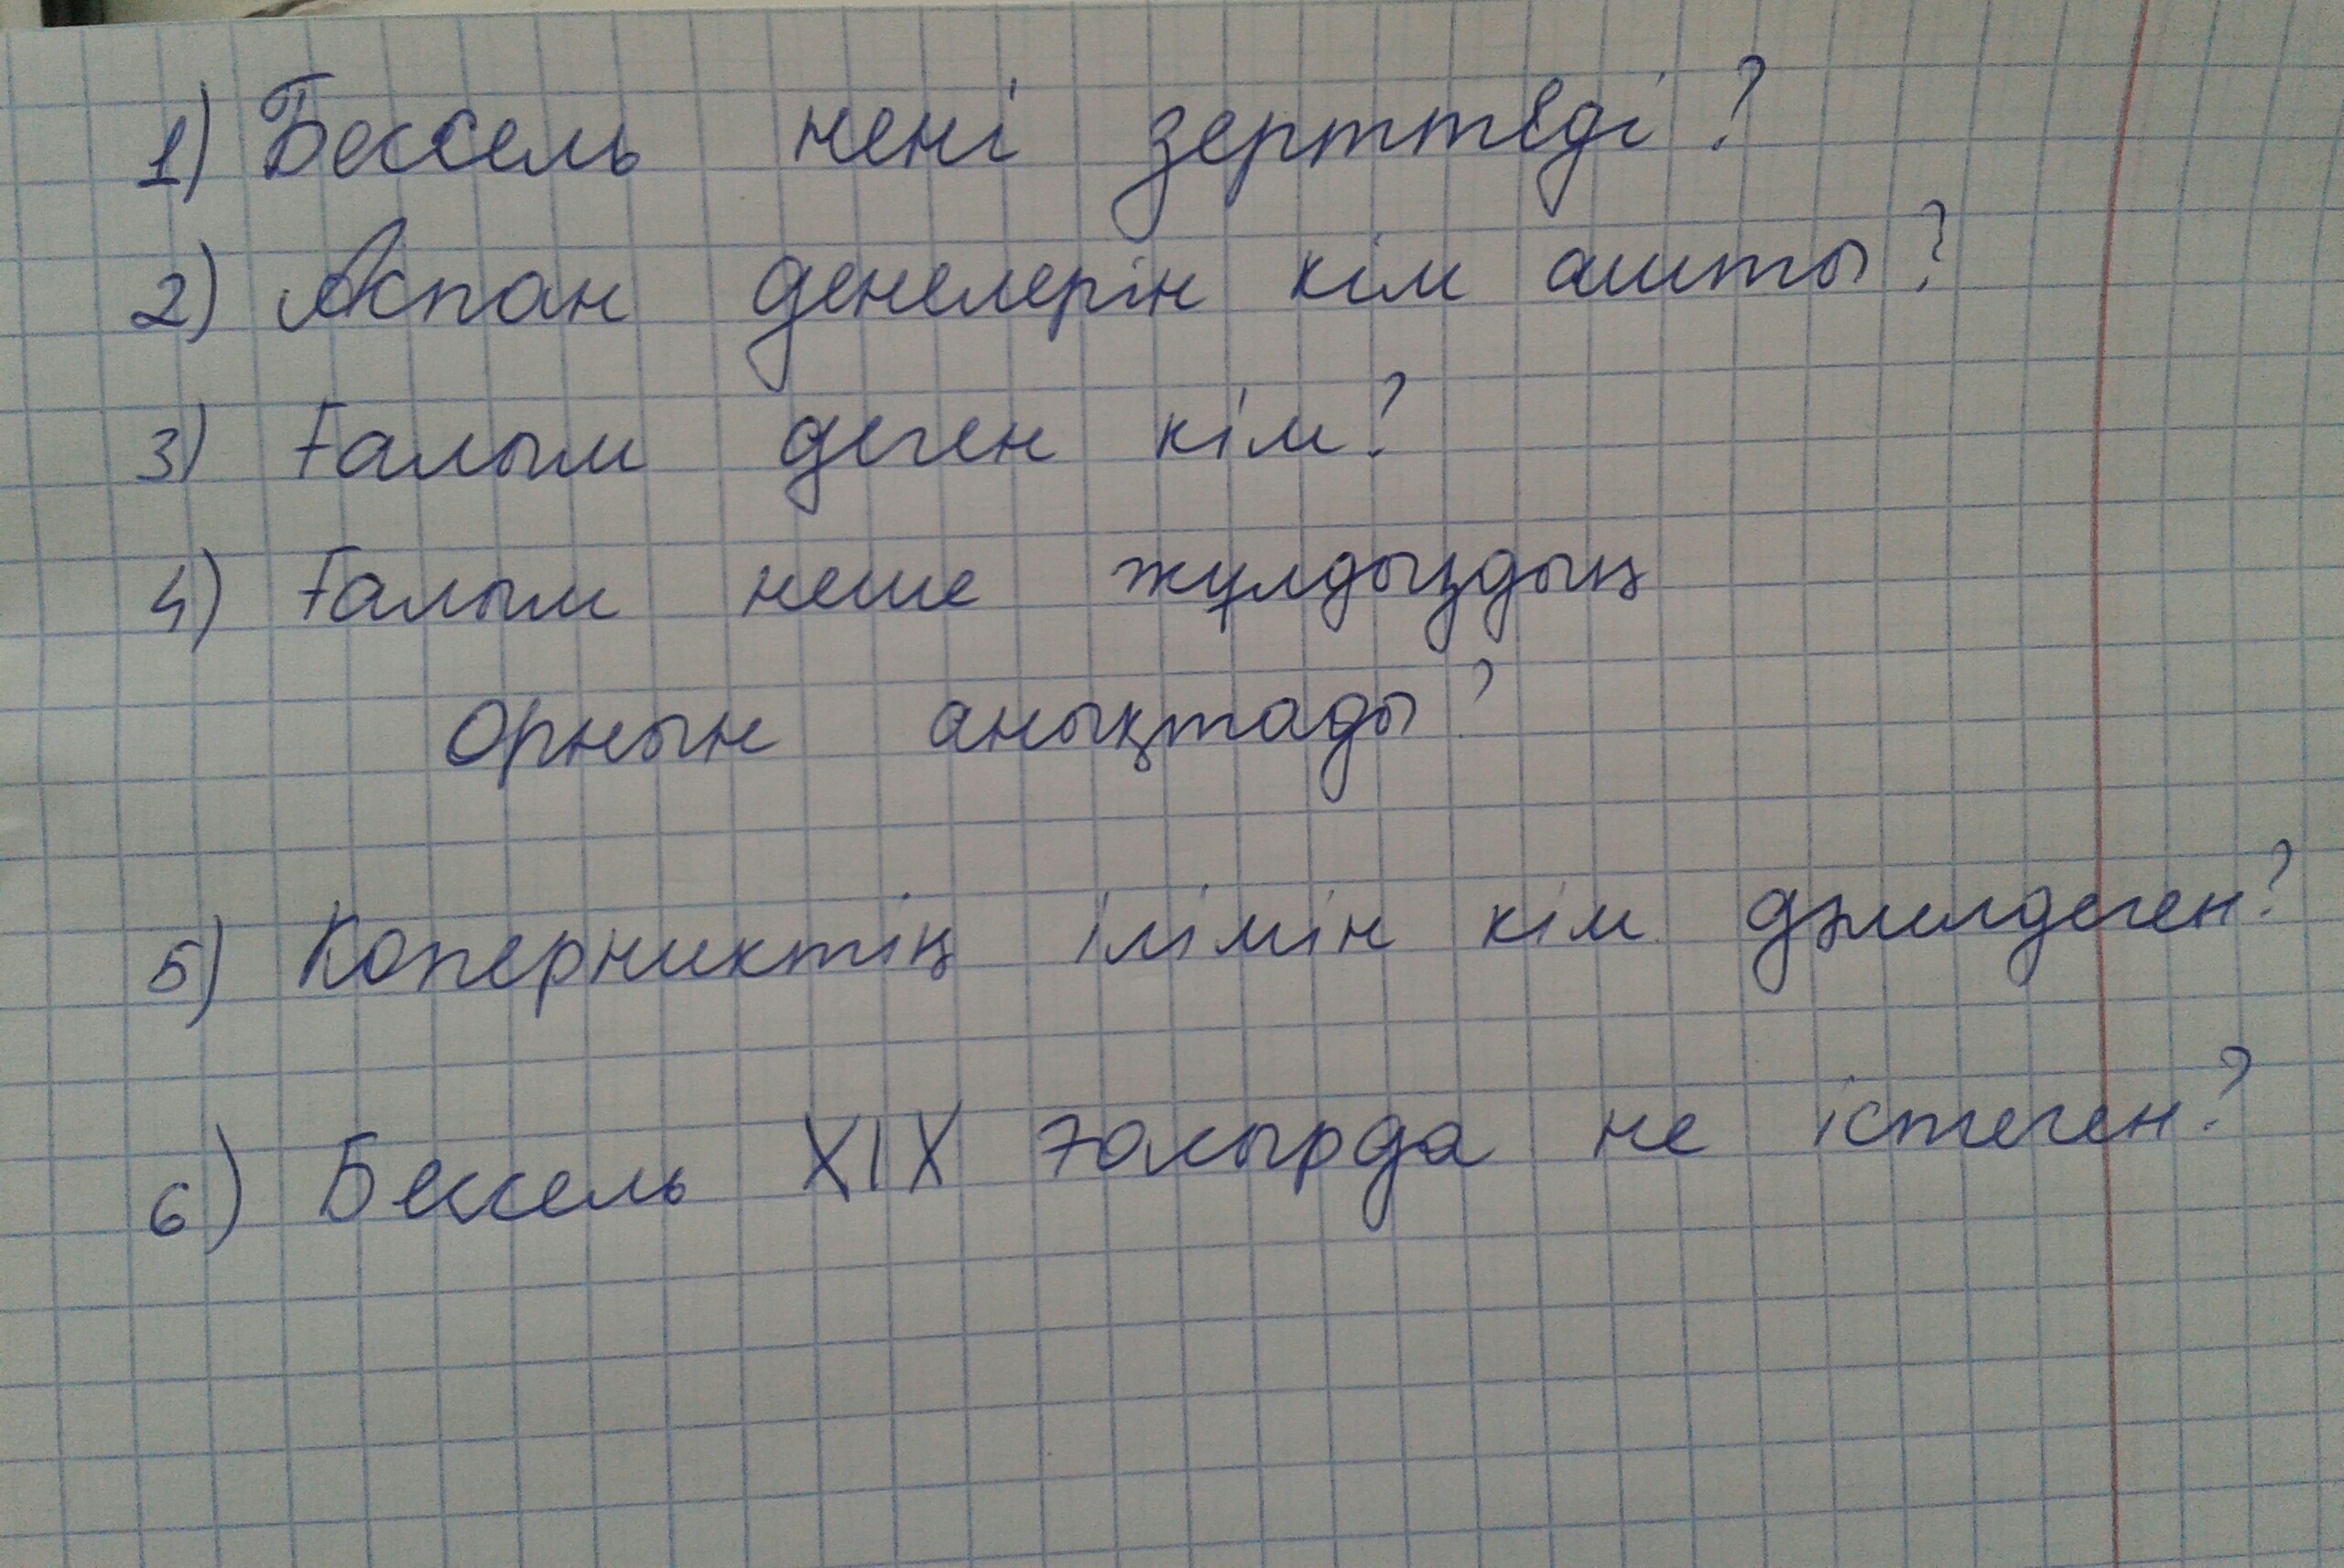 1) Бессель нені зерттеді?
2) Аспан денелерін кім ашты?
3) Ғалым деген кім?
4) Ғалым неше жұлдыздың
орнын анықтады?
5) Коперниктің ілімін кім дәлелдеген?
6) Бессель XIX ғасырда не істеген?